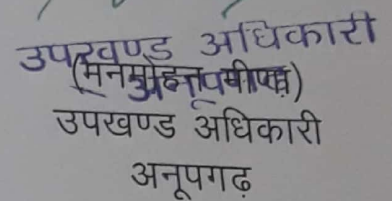 उपखण्ड अधिकारी
(मनमोहन मीणा)
उपखण्ड अधिकारी
अनूपगढ़